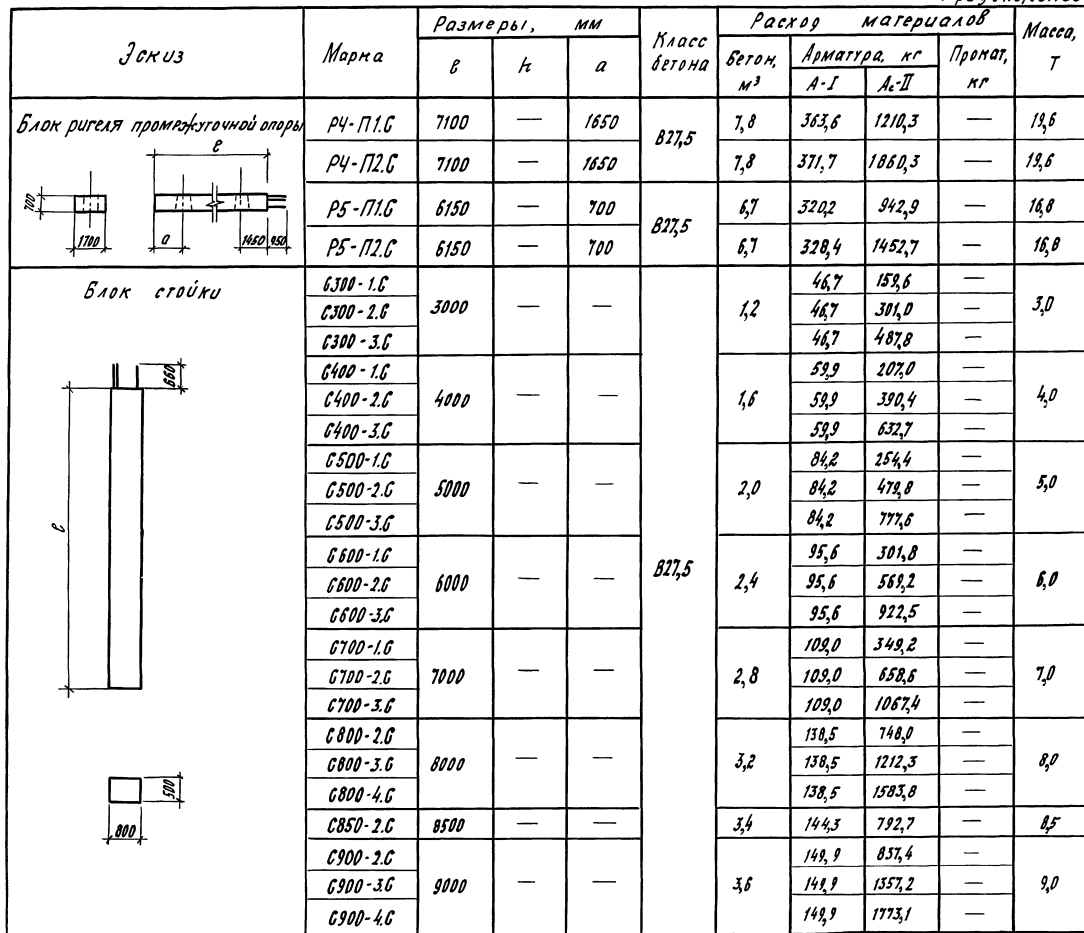 Эскиз Марка Размеры, мм Класс бетона Расход материалов Масса, т
ℓ h a Бетон, м³ Арматура, кг Прокат, кг
А-I Ас-II
Блок ригеля промежуточной опоры
ℓ
700
1700
a
1450 950
Р4-П1.С 7100 — 1650 В27,5 7,8 363,6 1210,3 — 19,6
Р4-П2.С 7100 — 1650 7,8 371,7 1860,3 — 19,6
Р5-П1.С 6150 — 700 В27,5 6,7 320,2 942,9 — 16,8
Р5-П2.С 6150 — 700 6,7 328,4 1452,7 — 16,8
Блок стойки
660
ℓ
500
800
С300-1.С 3000 — — В27,5 1,2 46,7 159,6 — 3,0
С300-2.С 46,7 301,0 —
С300-3.С 46,7 487,8 —
С400-1.С 4000 — — 1,6 59,9 207,0 — 4,0
С400-2.С 59,9 390,4 —
С400-3.С 59,9 632,7 —
С500-1.С 5000 — — 2,0 84,2 254,4 — 5,0
С500-2.С 84,2 479,8 —
С500-3.С 84,2 777,6 —
С600-1.С 6000 — — 2,4 95,6 301,8 — 6,0
С600-2.С 95,6 569,2 —
С600-3.С 95,6 922,5 —
С700-1.С 7000 — — 2,8 109,0 349,2 — 7,0
С700-2.С 109,0 658,6 —
С700-3.С 109,0 1067,4 —
С800-2.С 8000 — — 3,2 138,5 748,0 — 8,0
С800-3.С 138,5 1212,3 —
С800-4.С 138,5 1583,8 —
С850-2.С 8500 — — 3,4 144,3 792,7 — 8,5
С900-2.С 9000 — — 3,6 149,9 837,4 — 9,0
С900-3.С 149,9 1357,2 —
С900-4.С 149,9 1773,1 —